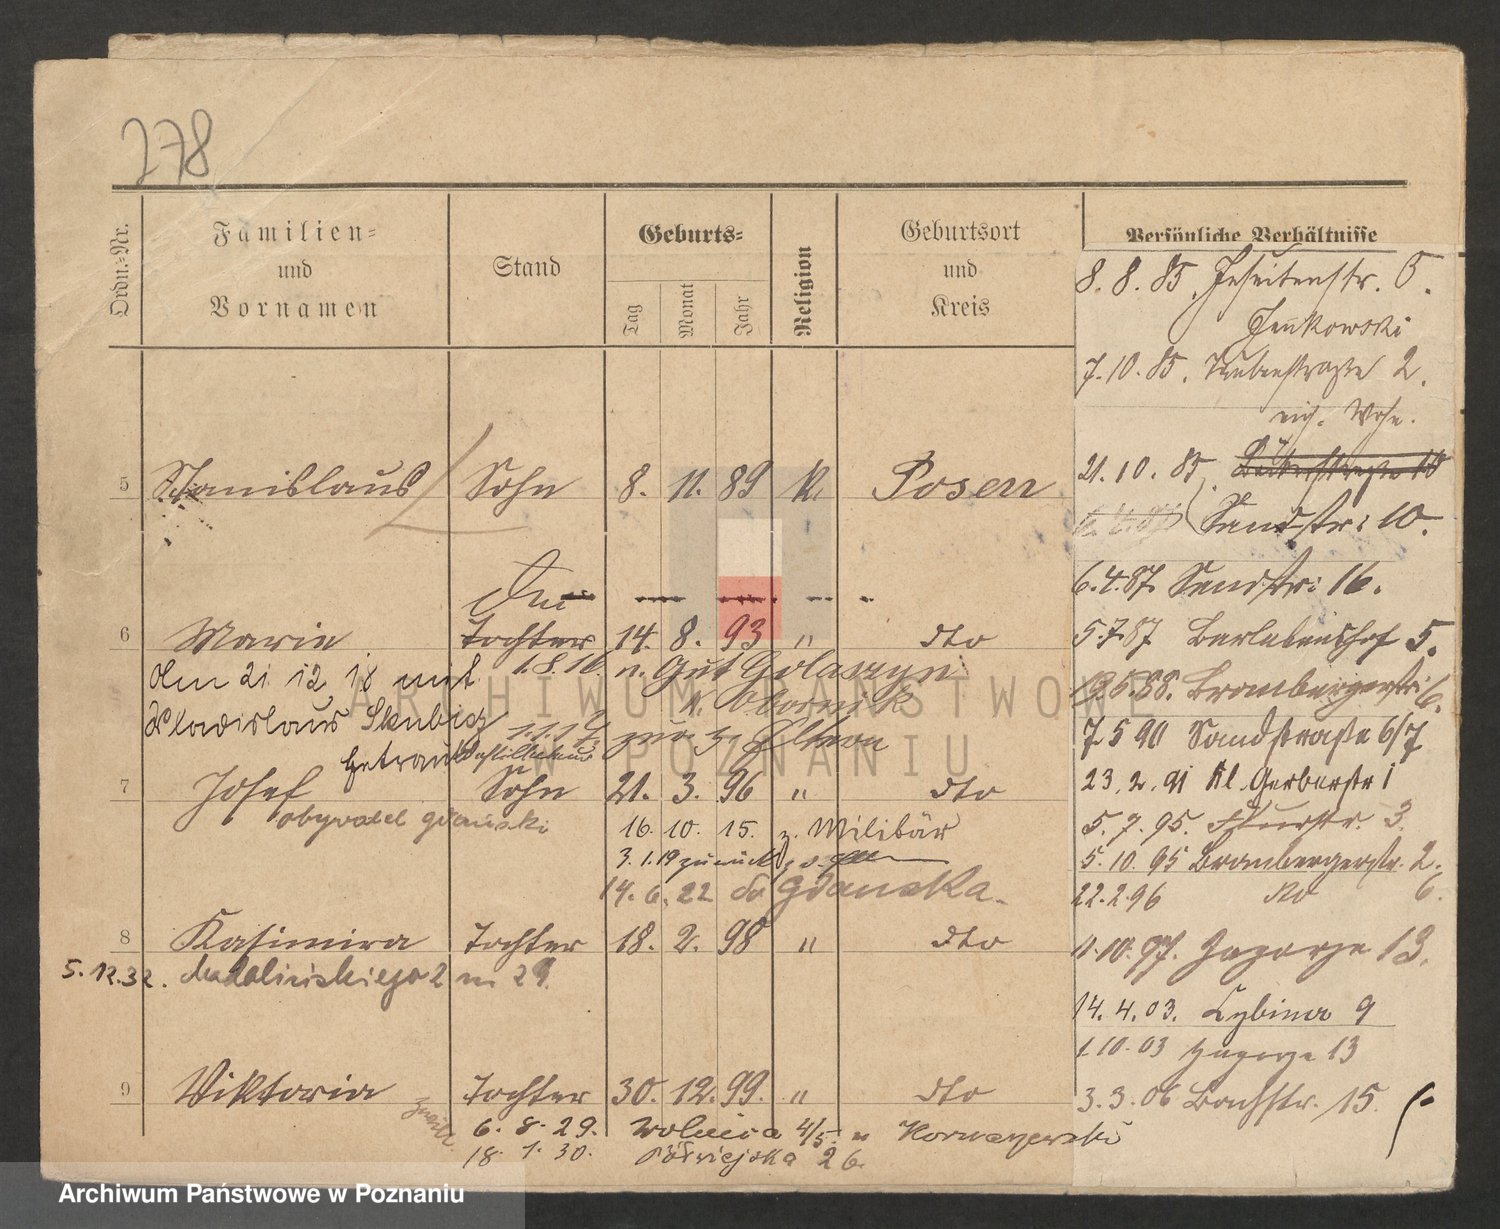 278
Ordn.-Nr.
Familien-
und
Vornamen
Stand
Geburts-
Tag
Monat
Jahr
Religion
Geburtsort
und
Kreis
Persönliche Verhältnisse
5 Stanislaus Sohn 8. 11. 89 k. Posen
6 Marie Tochter 14. 8. 93 " dto
Am 21 12 18 mit 1.8.16. n. Gut Golaszyn
Wladislaus Skubig
getraut 1.1.17. zur. z. Eltern
7 Josef Sohn 21. 3. 96 " dto
obywatel gdański
16. 10. 15. z. Militär
3. 1. 19 zurück
14. 6. 22 do Gdańska.
8 Kasimira Tochter 18. 2. 98 " dto
5.12.32. Madalińskiego 2 m 29.
9 Viktoria Tochter 30. 12. 99. " dto
6. 8. 29. Wolnica 4/5. u
18. 1. 30. Półwiejska 26.
8. 8. 85. Jesuitenstr. 5.
Jankowski
7. 10. 85. 2.
eig. Wohn.
21. 10. 85.
Sandstr: 10.
6.4.87. Sandstr: 16.
5.7.87 Berlebenshof 5.
5.88. Brombergerstr: 6.
7 5 90 Sandstraße 6/7
23. 2. 91 Kl. Gerberstr 1
5. 7. 95. 3.
5. 10. 95 Brombergerstr. 2.
22.2.96 dto 6.
1.10.97. Zagorze 13.
14. 4. 03. Cybina 9
1.10.03 Zagorze 13
3. 3. 06 Bachstr. 15.
ARCHIWUM PAŃSTWOWE
W POZNANIU
Archiwum Państwowe w Poznaniu